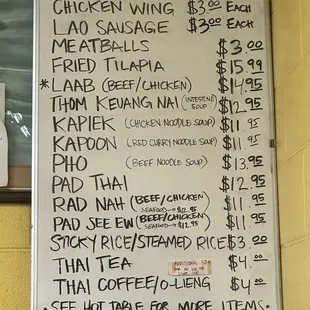 CHICKEN WING $3.00 EACH
LAO SAUSAGE $3.00 EACH
MEATBALLS $3.00
FRIED TILAPIA $15.99
* LAAB (BEEF/CHICKEN) $14.95
THOM KEUANG NAI (INTESTINE SOUP) $12.95
KAPIEK (CHICKEN NOODLE SOUP) $11.95
KAPOON (RED CURRY NOODLE SOUP) $11.95
PHO (BEEF NOODLE SOUP) $13.95
PAD THAI $12.95
RAD NAH (BEEF/CHICKEN) $11.95
SEAFOOD→$12.95
PAD SEE EW (BEEF/CHICKEN) $11.95
SEAFOOD→$12.95
STICKY RICE/STEAMED RICE $3.00
THAI TEA $4.00
THAI COFFEE/O-LIENG $4.00
SEE HOT TABLE FOR MORE ITEMS